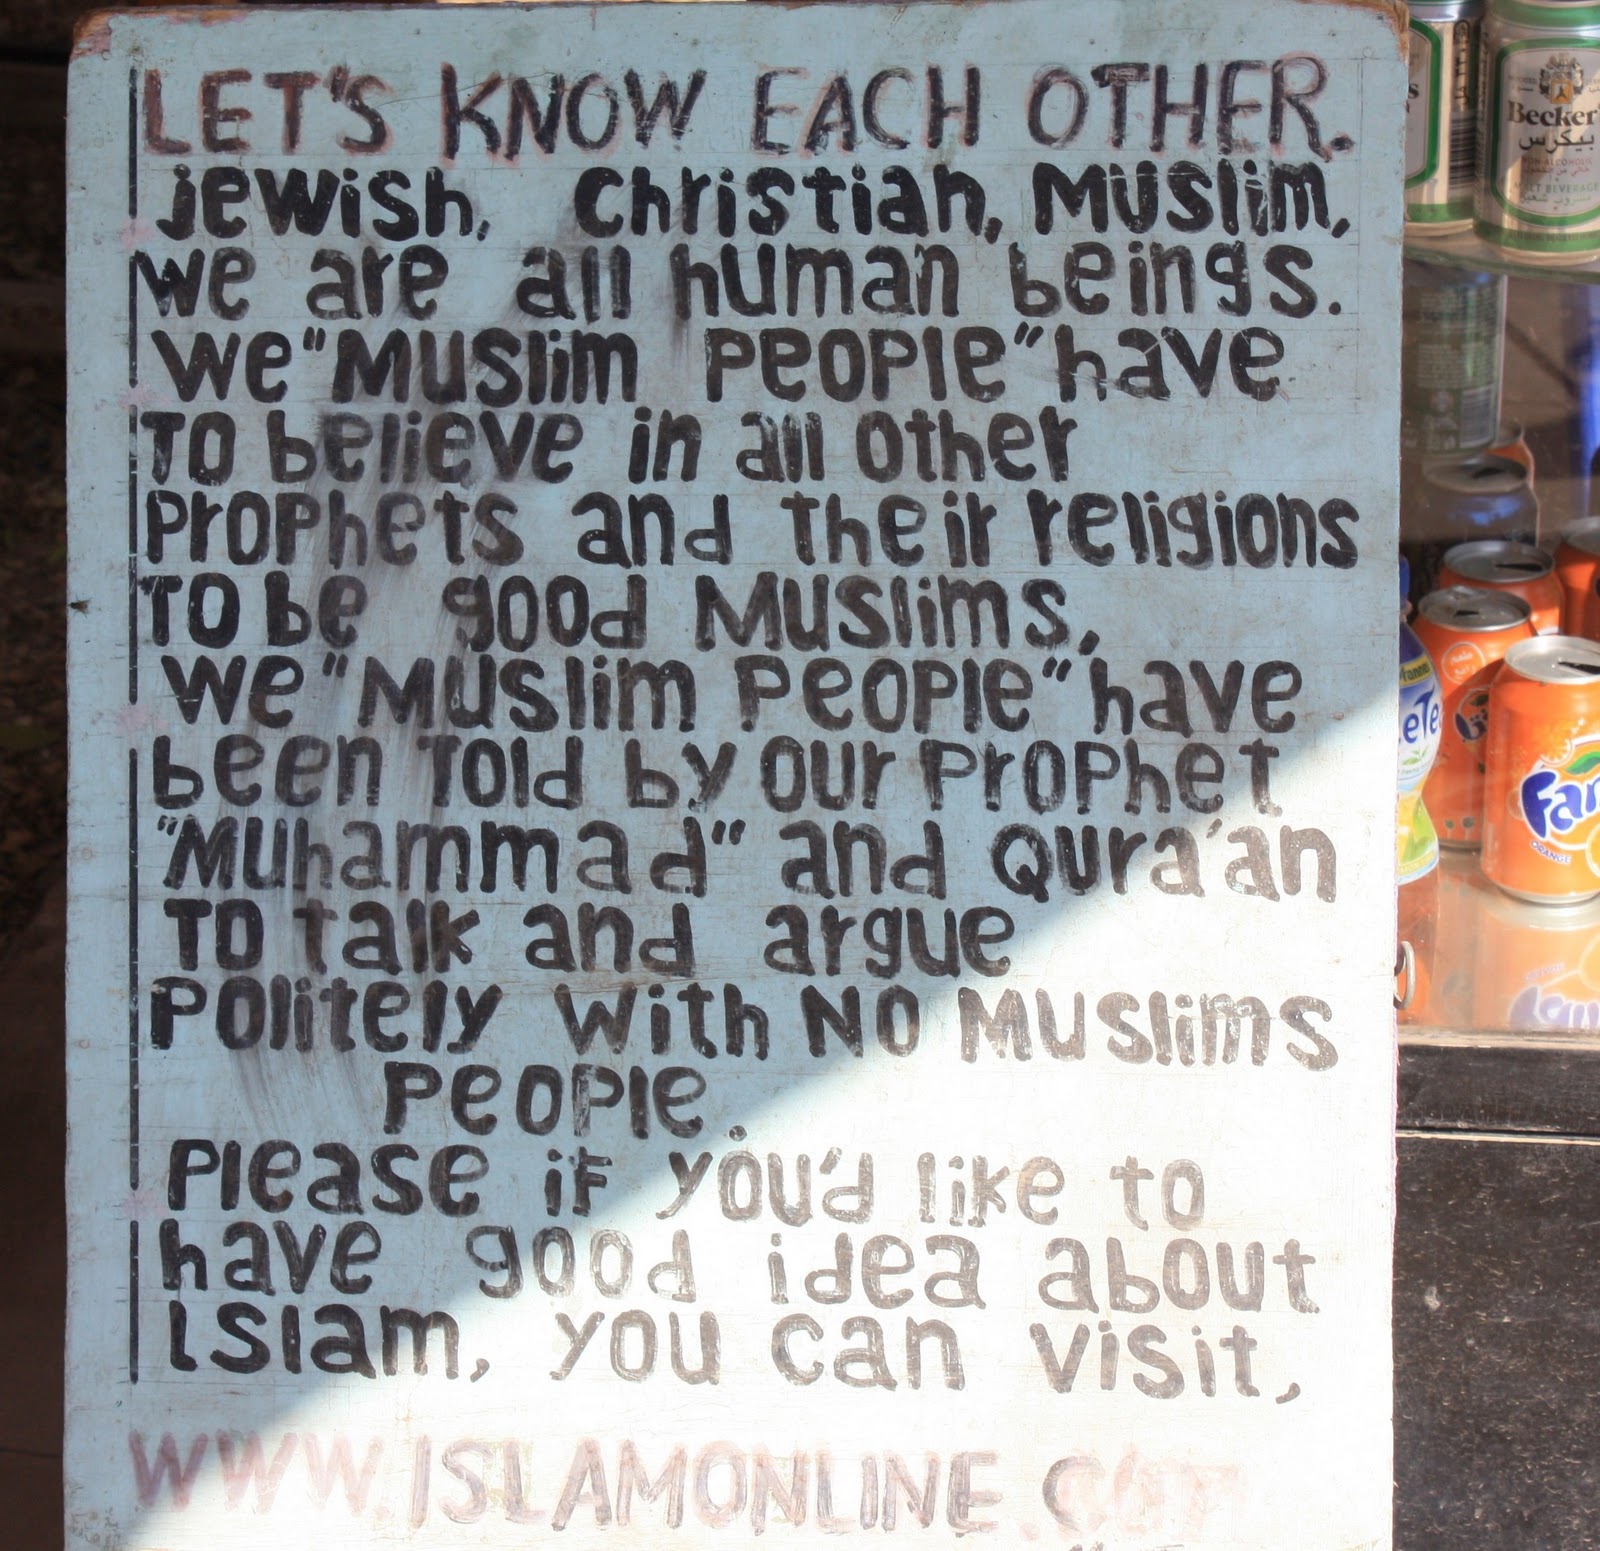 LET'S KNOW EACH OTHER.
Jewish, Christian, Muslim,
we are all human beings.
We "Muslim People" have
To believe in all other
Prophets and their religions
To be good Muslims,
We "Muslim People" have
been Told by our Prophet
"Muhammad" and Qura'an
To talk and argue
Politely with No Muslims
People.
Please if you'd like to
have good idea about
Islam, you can visit,
WWW.ISLAMONLINE.COM
Becker's
بيكرس
NON-ALCOHOLIC
MALT BEVERAGE
Fan
ORANGE